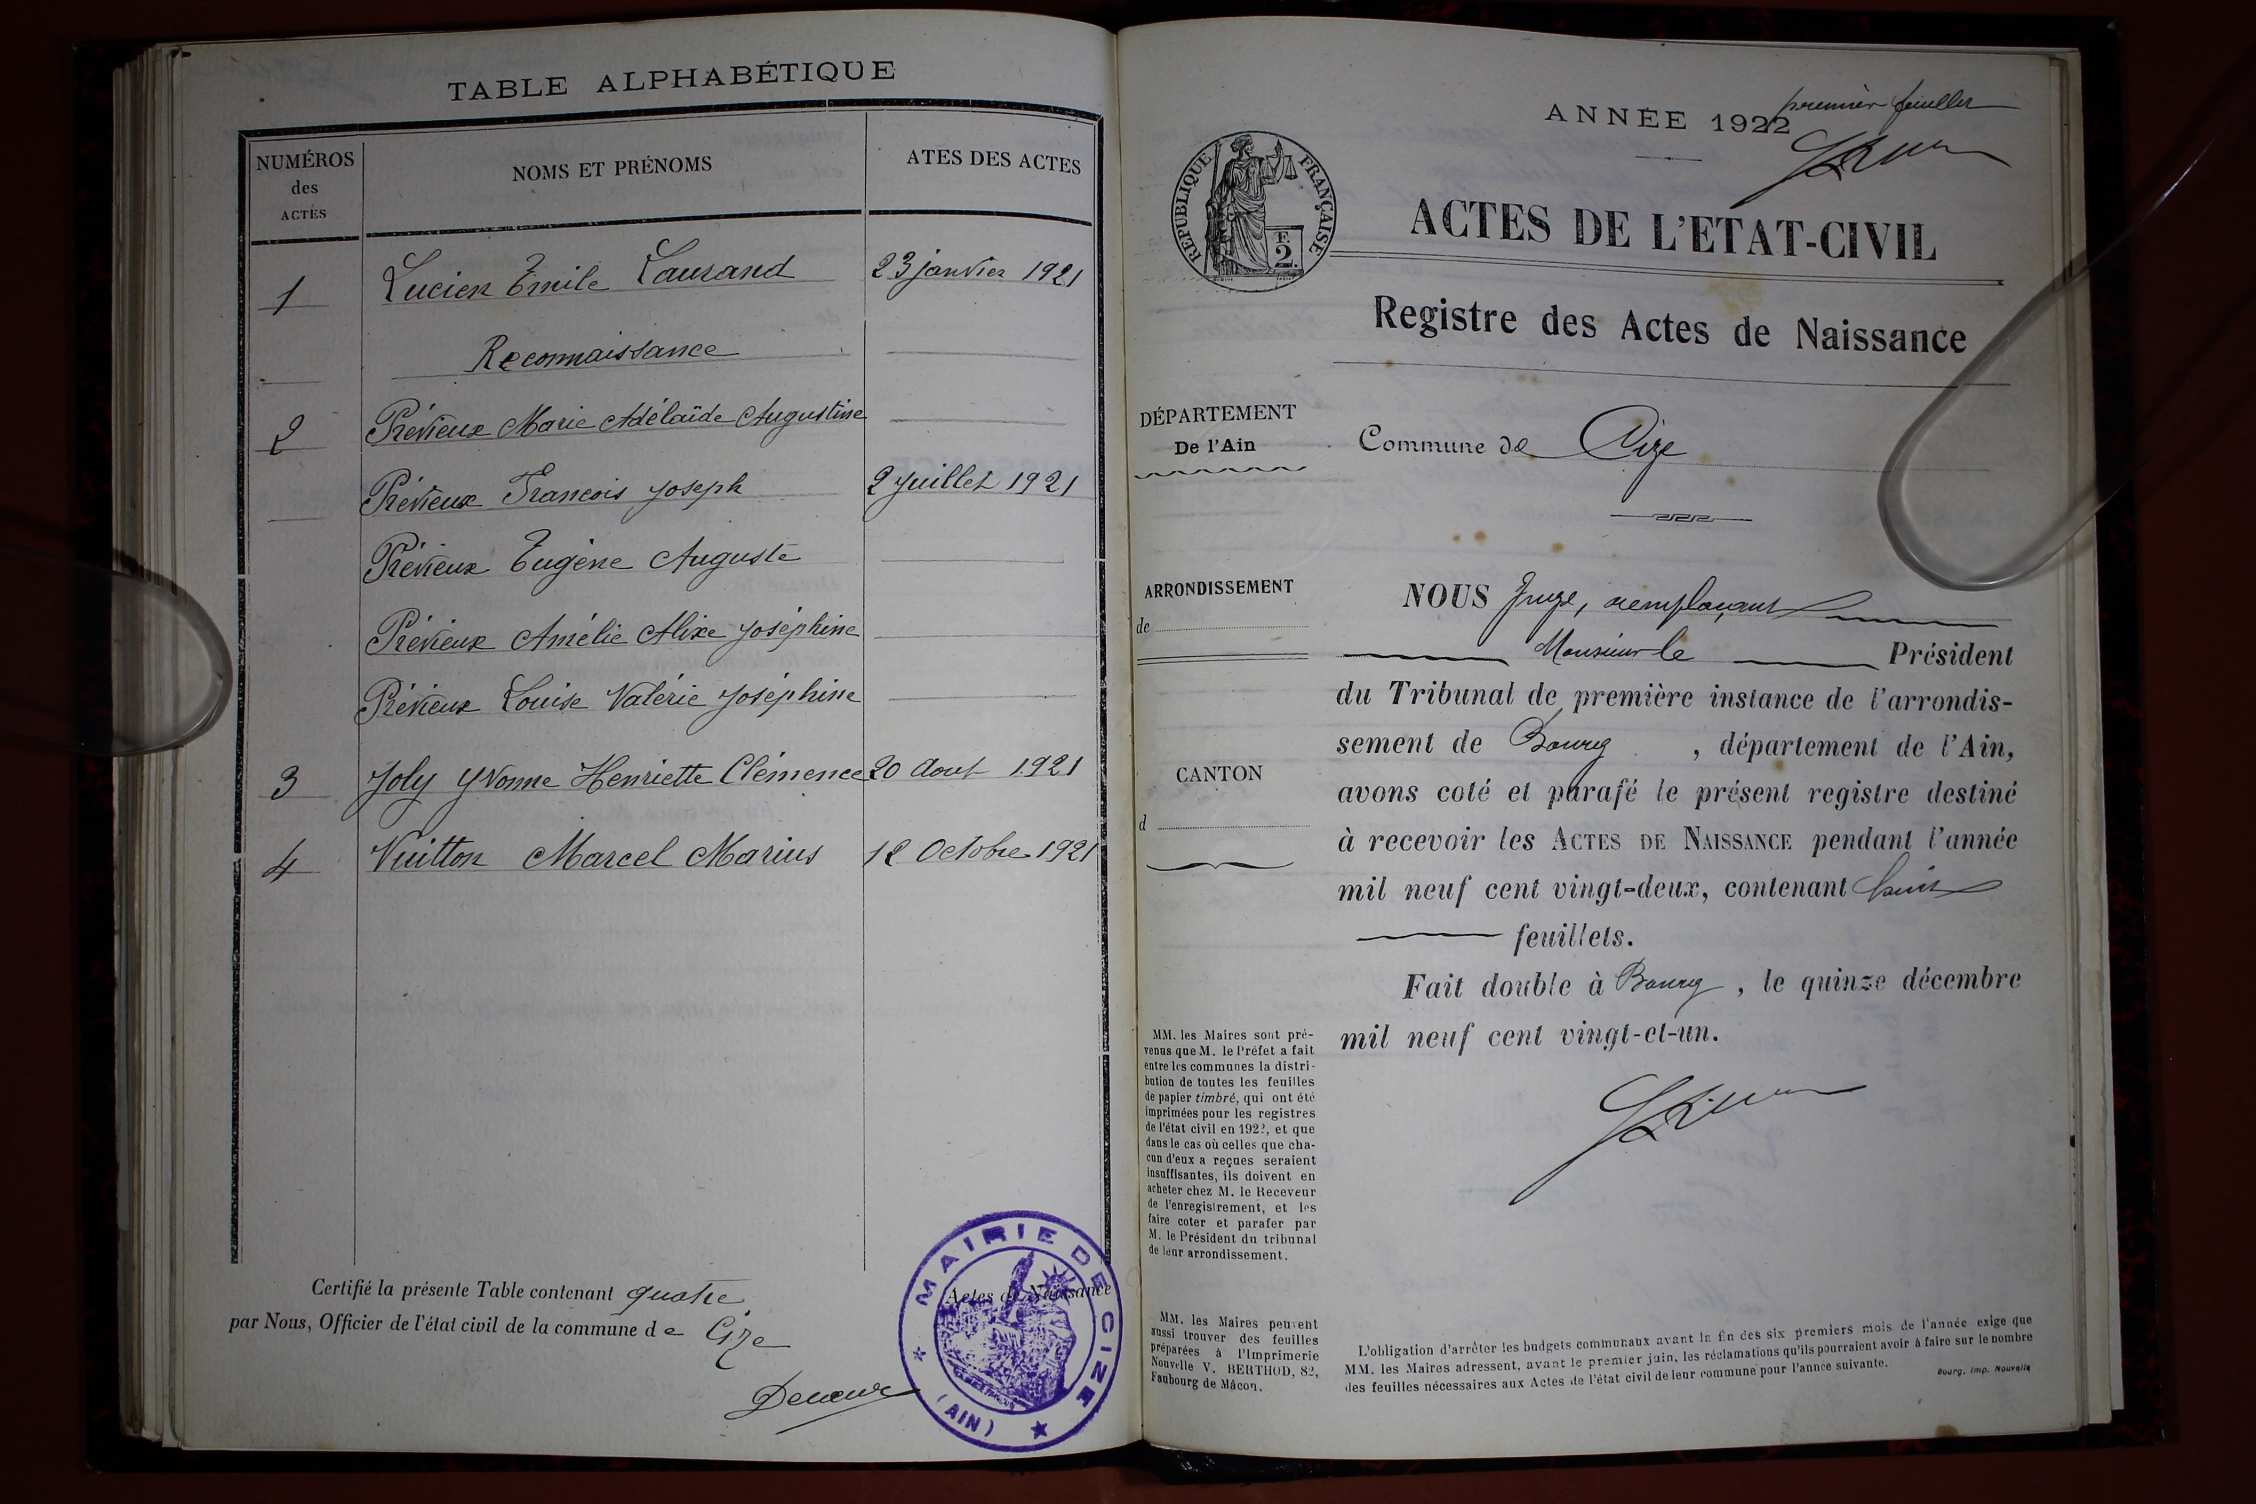 TABLE ALPHABÉTIQUE
NUMÉROS
des
ACTES
NOMS ET PRÉNOMS
ATES DES ACTES
1 Lucien Emile Laurand 23 janvier 1921
Reconnaissance
2 Prévieux Marie Adélaïde Augustine
Prévieux Francois Joseph 2 Juillet 1921
Prévieux Eugène Auguste
Prévieux Amélie Alixe Joséphine
Prévieux Louise Valérie Joséphine
3 Joly Yvonne Henriette Clémence 20 Aout 1921
4 Vuitton Marcel Marius 12 Octobre 1921
Certifié la présente Table contenant quatre Actes de Naissance
par Nous, Officier de l'état civil de la commune de Cize
MAIRIE DE CIZE
(AIN)
premier feuillet
ANNÉE 1922
REPUBLIQUE FRANÇAISE
2
ACTES DE L'ETAT-CIVIL
Registre des Actes de Naissance
DÉPARTEMENT
De l'Ain
Commune de Cize
ARRONDISSEMENT
de
CANTON
d
NOUS Juge, remplaçant
Monsieur le Président
du Tribunal de première instance de l'arrondis-
sement de Bourg, département de l'Ain,
avons coté et parafé le présent registre destiné
à recevoir les ACTES DE NAISSANCE pendant l'année
mil neuf cent vingt-deux, contenant huit
feuillets.
Fait double à Bourg, le quinze décembre
mil neuf cent vingt-et-un.
MM. les Maires sont pré-
venus que M. le Préfet a fait
entre les communes la distri-
bution de toutes les feuilles
de papier timbré, qui ont été
imprimées pour les registres
de l'état civil en 1922, et que
dans le cas où celles que cha-
cun d'eux a reçues seraient
insuffisantes, ils doivent en
acheter chez M. le Receveur
de l'enregistrement, et les
faire coter et parafer par
M. le Président du tribunal
de leur arrondissement.
MM. les Maires peuvent
aussi trouver des feuilles
préparées à l'Imprimerie
Nouvelle V. BERTHOD, 82,
Faubourg de Mâcon.
L'obligation d'arrêter les budgets communaux avant la fin des six premiers mois de l'année exige que
MM. les Maires adressent, avant le premier juin, les réclamations qu'ils pourraient avoir à faire sur le nombre
des feuilles nécessaires aux Actes de l'état civil de leur commune pour l'année suivante.
Bourg, Imp. Nouvelle